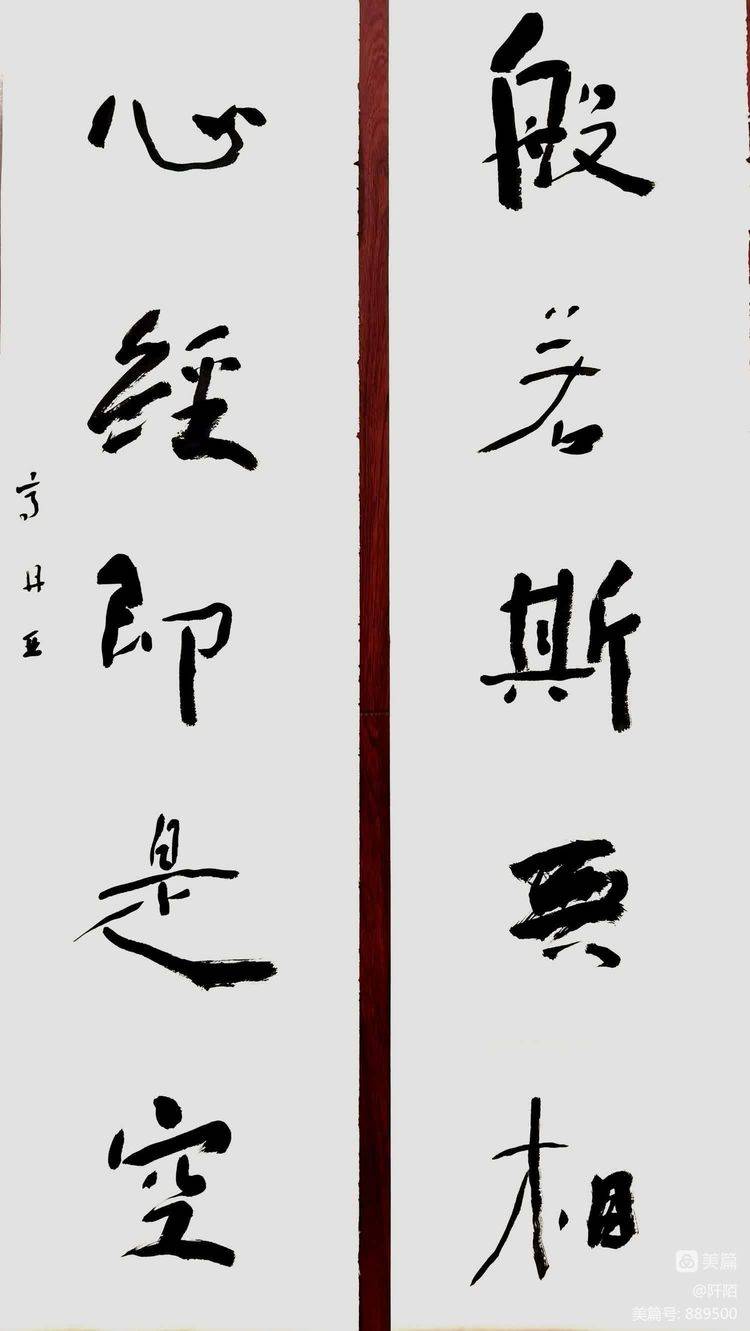 般若斯真相
心經即是空
美篇
@阡陌
美篇号: 889500